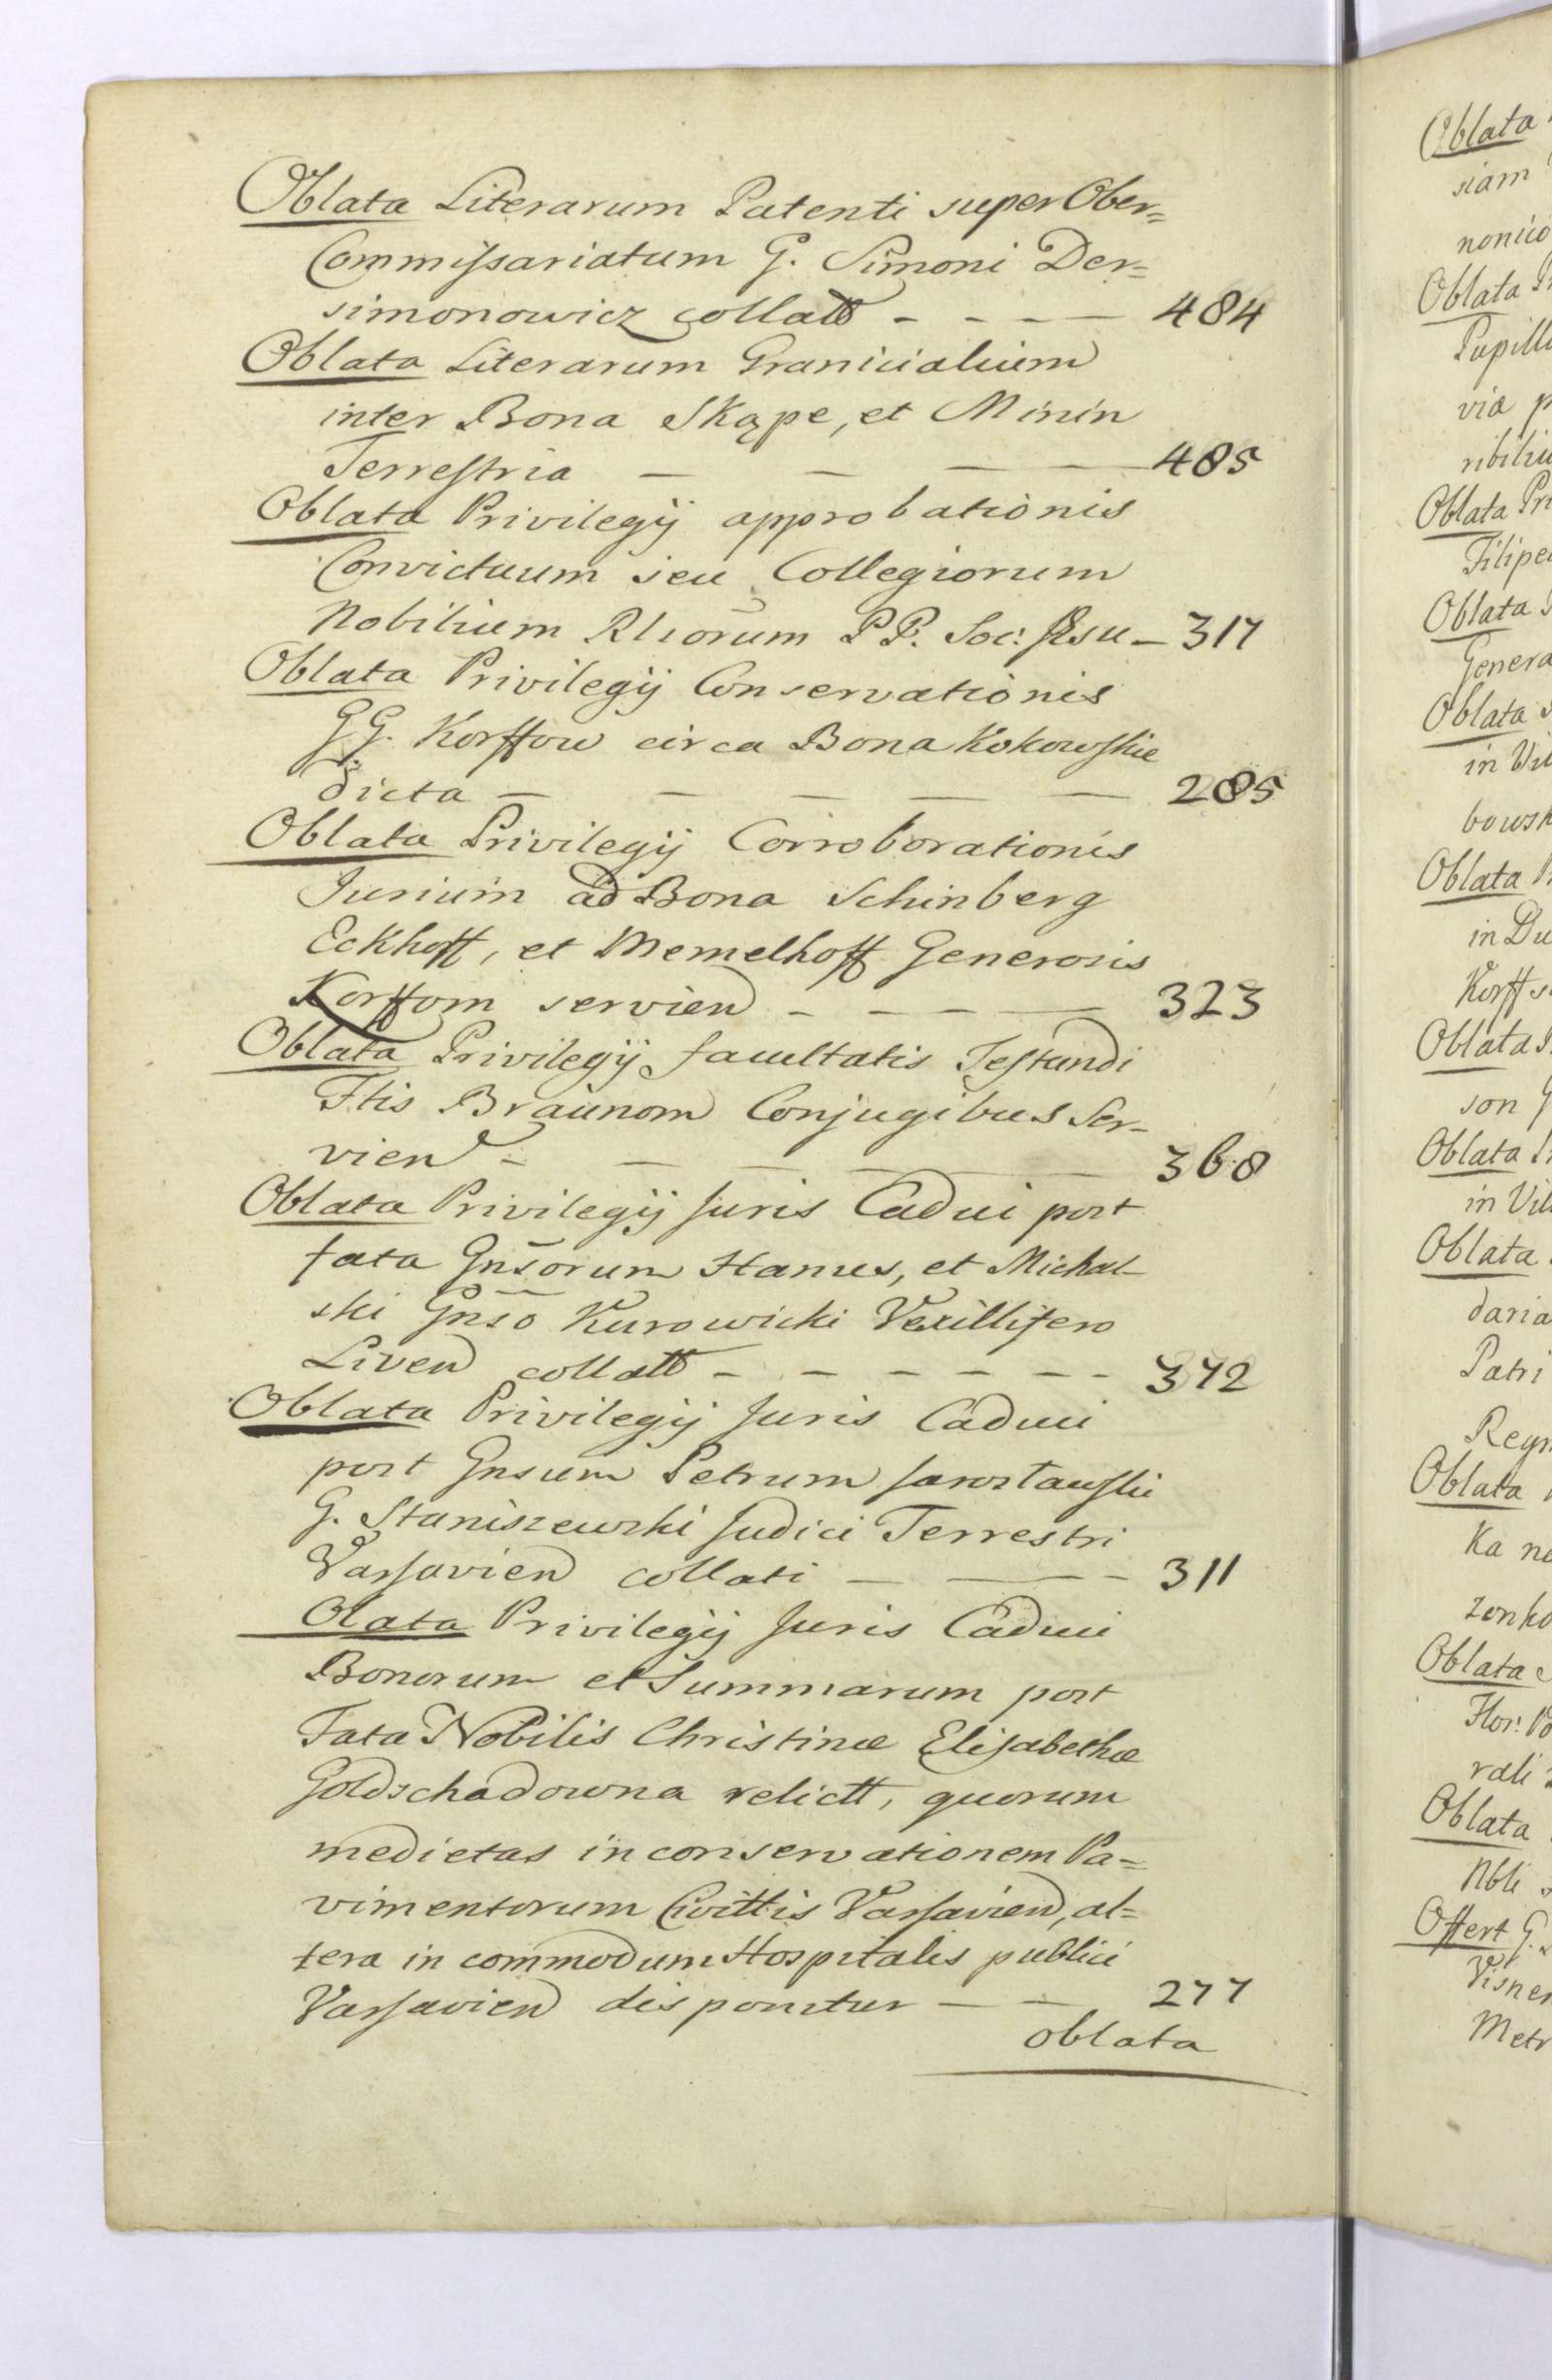 Oblata Literarum Patenti super Ober=
Commissariatum G. Simoni Der=
simonowicz collatt - - - - 484
Oblata Literarum Granicialium
inter Bona Skąpe, et Minin
Terrestria - - - - 485
Oblata Privilegij approbationis
Convictuum seu Collegiorum
Nobilium Rliorum P P. Soc: Jesu - 317
Oblata Privilegij Conservationis
G G. Korffow circa Bona Kokowskie
dicta - - - - - 285
Oblata Privilegij Corroborationis
Jurium ad Bona Schinberg
Eckhoff, et Memelhoff Generosis
Korffom servien - - - - 323
Oblata Privilegij facultatis Testandi
Fttis Braunom Conjugibus Ser-
vien - - - - - 368
Oblata Privilegij Juris Caduci post
fata Gnsorum Hanus, et Michal-
ski Gnso Kurowicki Vexillifero
Liven collatt - - - - - - 372
Oblata Privilegij Juris Caduci
post Gnsum Petrum
G. Staniszewski Judici Terrestri
Varsavien collati - - - 311
Olata Privilegij Juris Caduci
Bonorum et Summarum post
Fata Nobilis Christinæ Elisabethæ
Goldschadowna relictt, quorum
medietas in conservationem Pa=
vimentorum Civittis Varsavien, al=
tera in commodum Hospitalis publici
Varsavien disponitur - - 277
oblata
Oblata
siam
nonico
Oblata
Oblata
Oblata
Oblata
in
Oblata
in
Korff
Oblata
son
Oblata
in
Oblata
daria
Patri
Oblata
Ka
Oblata
Oblata
Offert G.